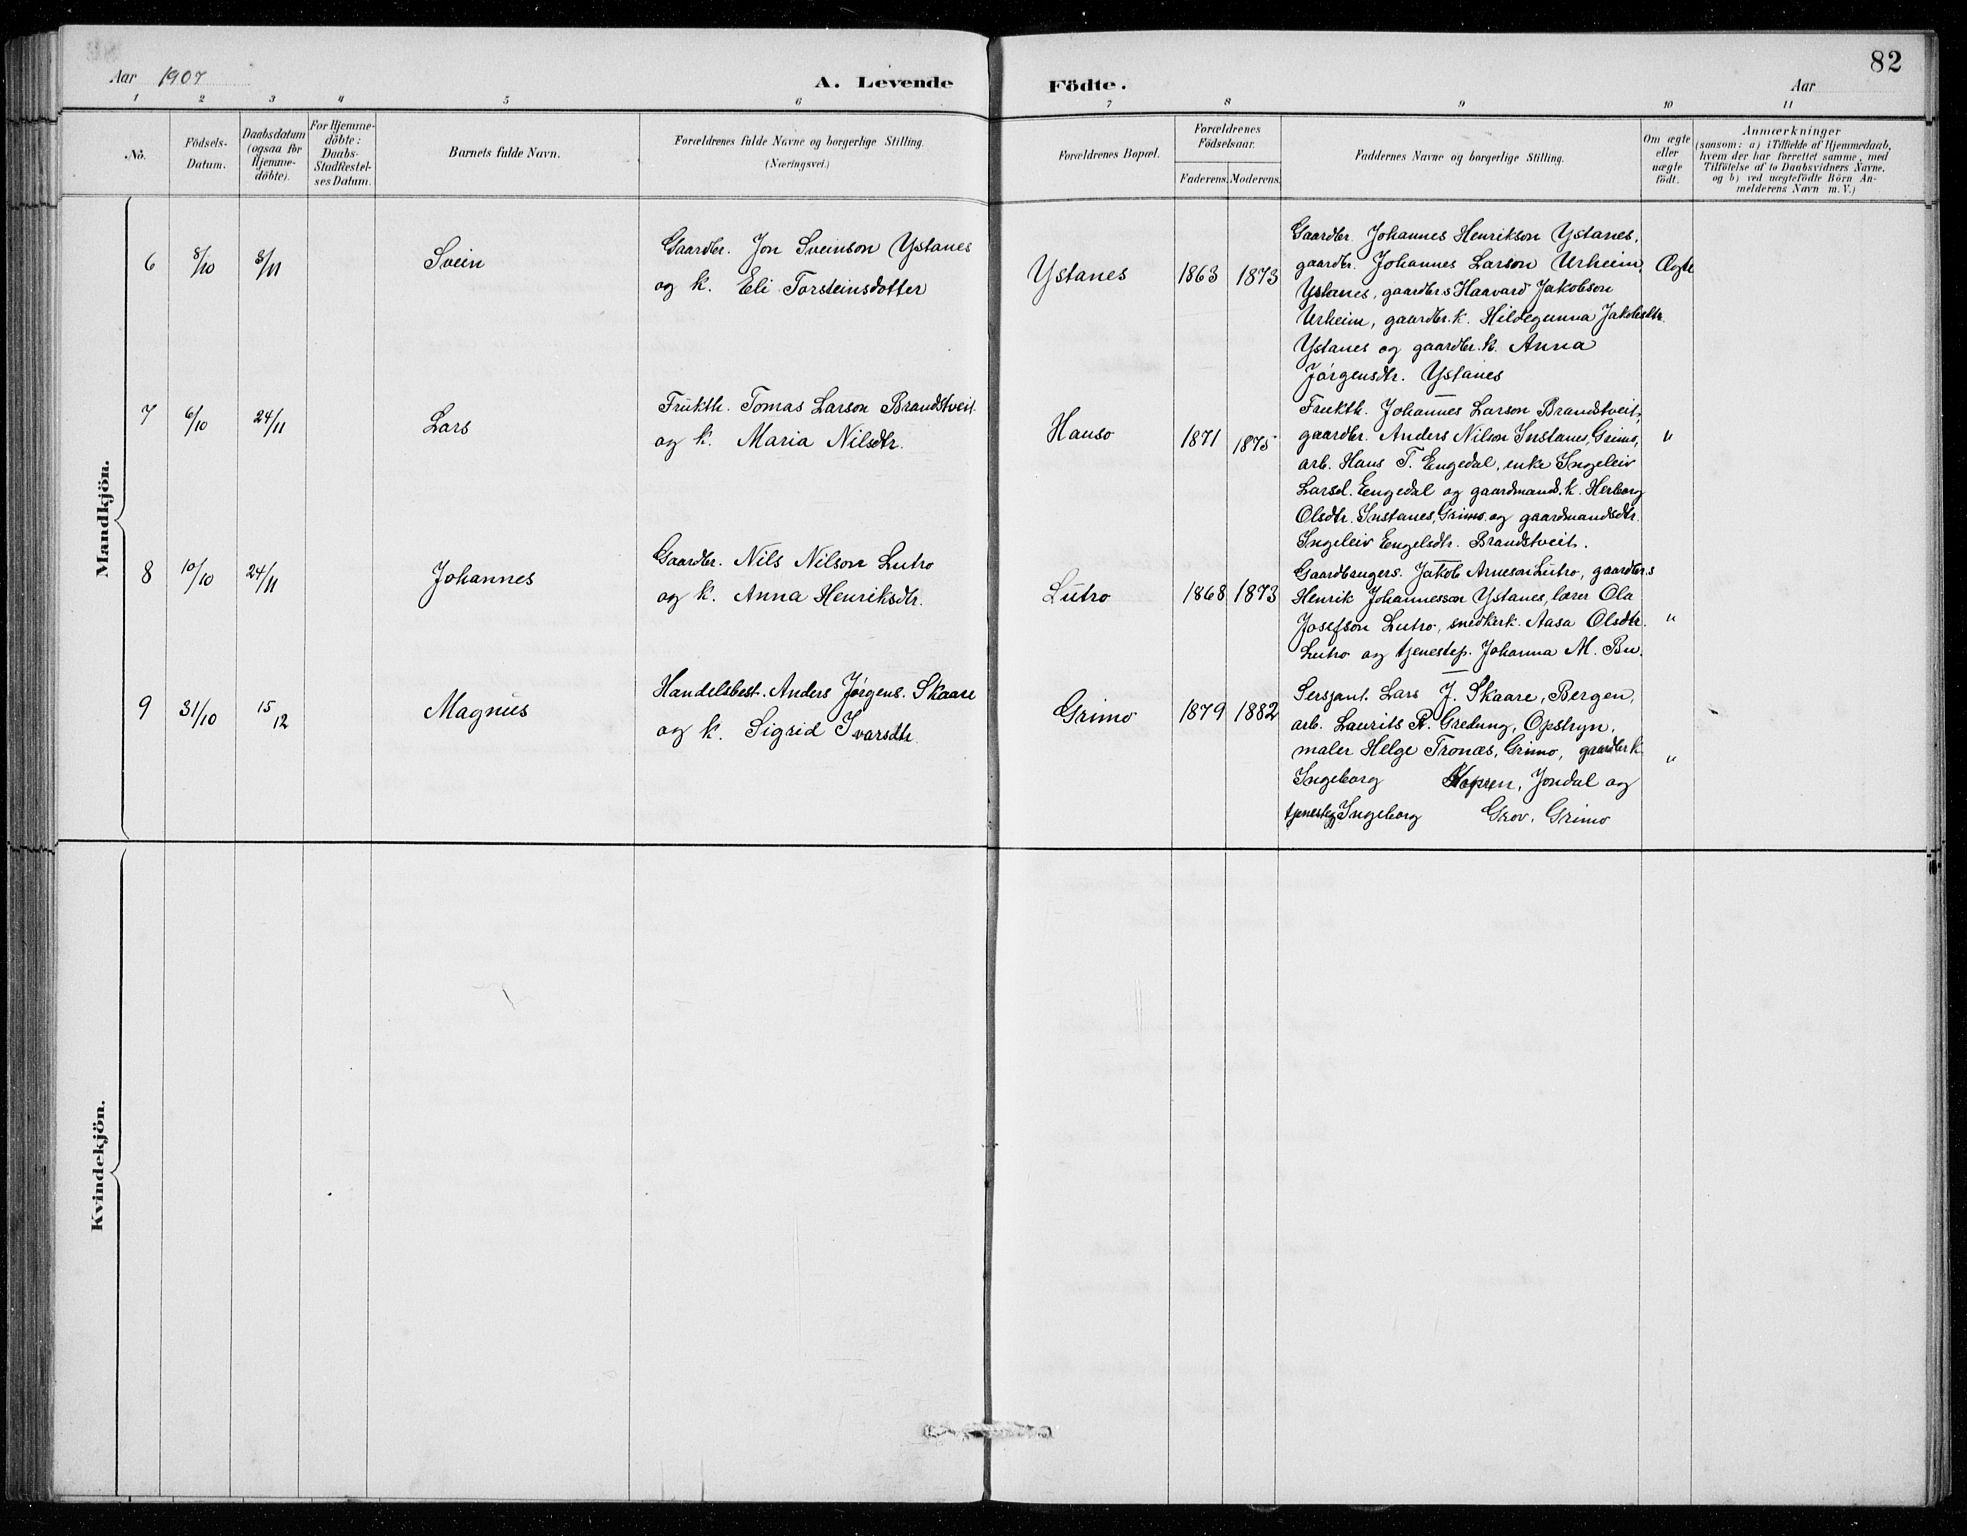 82
Aar 1907
A. Levende
Födte.
Aar
1 2 3 4 5 6 7 8 9 10 11
No.
Födsels-
Datum.
Daabsdatum
(ogsaa for
Hjemme-
döbte).
For Hjemme-
döbte:
Daabs-
Stadfæstel-
ses Datum.
Barnets fulde Navn.
Forældrenes fulde Navne og borgerlige Stilling.
(Næringsvei.)
Forældrenes Bopæl.
Forældrenes
Födselsaar.
Faderens. Moderens.
Faddernes Navne og borgerlige Stilling.
Om ægte
eller
uægte
født.
Anmærkninger
(saasom: a) i Tilfælde af Hjemmedaab,
hvem der har forrettet samme, med
Tilföielse af to Daabsvidners Navne.
og b) ved uægtefödte Börn An-
melderens Navn m. V.)
Mandkjön.
6 8/10 3/11 Svein
Gaardbr. Jon Sveinson Ystanes
og k. Eli Torsteinsdotter
Ystanes 1863 1873
Gaardbr. Johannes Henrikson Ystanes,
gaardbr. Johannes Larson Urheim,
Ystanes, gaardbrs Haavard Jakobson
Urheim, gaardbr. k. Hildegunna Jakobsdtr.
Ystanes og gaardbr. k. Anna
Jørgensdtr. Ystanes
Ægte
7 6/10 24/11 Lars
Frukth. Tomas Larson Brandstveit
og k. Maria Nilsdtr.
Hauso 1871 1875
Frukth. Johannes Larson Brandstveit,
gaardbr. Anders Nilson Instanes, Grimo,
arb. Hans T. Engedal, enke Ingeleiv
Larsd. Engedal og gaardmands. k. Herborg
Olsdtr. Instanes, Grimo og gaardmandsdtr.
Ingeleiv Engelsdtr. Brandstveit.
"
8 10/10 24/11 Johannes
Gaardbr. Nils Nilson Lutro
og k. Anna Henriksdtr.
Lutro 1868 1873
Gaardbrugers. Jakob Arneson Lutro, gaardbr.s
Henrik Johannesson Ystanes, lærer Ola
Josefson Lutro, snedkerk. Aasa Olsdtr.
Lutro og tjenestep. Johanna M. Bu.
"
9 31/10 15/12 Magnus
Handelsbest. Anders Jørgens. Skaare
og k. Sigrid Ivarsdtr.
Grimo 1879 1882
Sersjant. Lars J. Skaare, Bergen,
arb. Laurits R. Gredung, Opstryn,
maler Helge Tronæs, Grimo, gaardbr k.
Ingeborg Jondal og
Ingeborg Grov, Grimo
"
Kvindekjön.